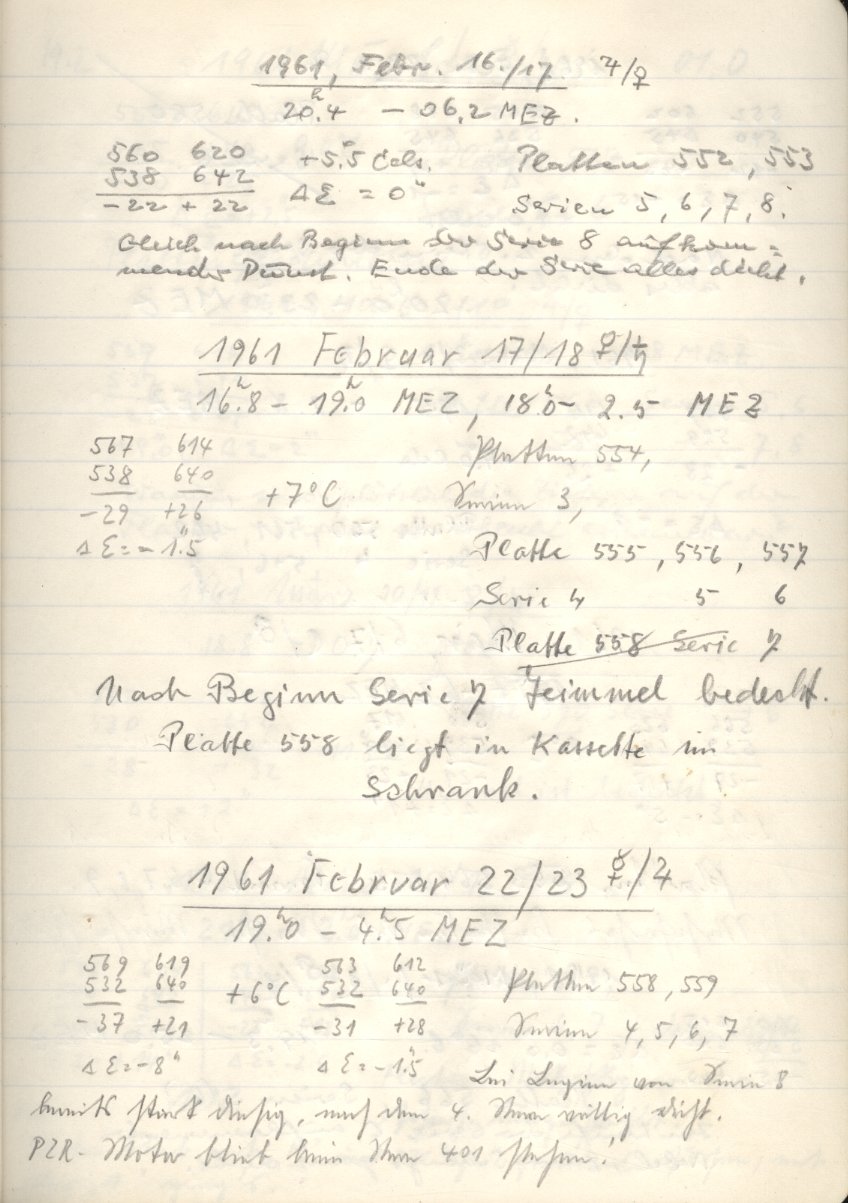 1961, Febr. 16./17. ♃/♀
20.ʰ4 — 06.2 MEZ.
560 620 +5.°5 Cels. Platten 552, 553
538 642 Δ Σ = 0"
-22 + 22 Serien 5, 6, 7, 8.
Gleich nach Beginn der Serie 8 aufkom=
mender Dunst. Ende der Serie alles dicht.
1961 Februar 17/18 ♀/♄
16.ʰ8 – 19.ʰ0 MEZ, 18.ʰ0 – 2.5 MEZ
567 614 Platten 554,
538 640 +7°C Serien 3,
-29 +26
Δ Σ = - 1."5 Platte 555, 556, 557
Serie 4 5 6
Platte 558 Serie 7
Nach Beginn Serie 7 Himmel bedeckt.
Platte 558 liegt in Kassette im
Schrank.
1961 Februar 22/23 ☿/♃
19.ʰ0 – 4.ʰ5 MEZ
569 619 563 612
532 640 +6°C 532 640 Platten 558, 559
-37 +21 -31 +28 Serien 4, 5, 6, 7
Δ Σ = -8" Δ Σ = -1."5 Bei Beginn von Serie 8
bereits stark diesig, nach dem 4. Stern völlig dicht.
PZR-Motor blieb beim Stern 401 stehen!